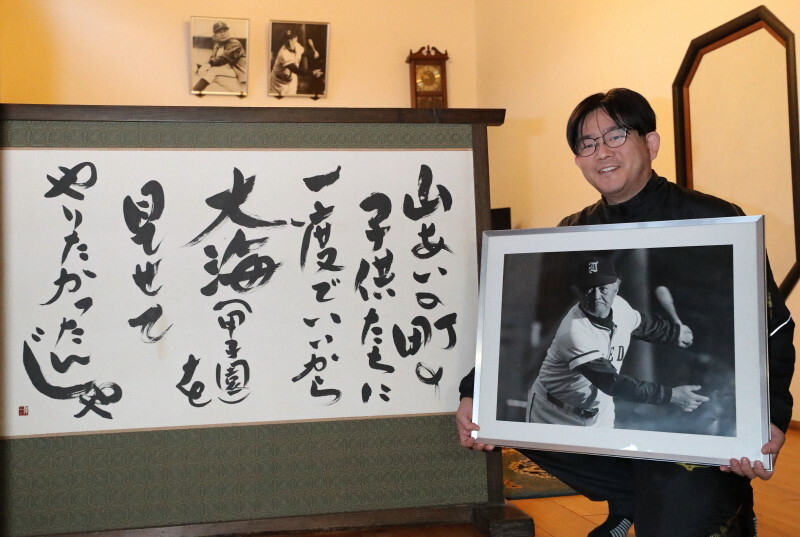 山あいの町の
子供たちに
一度でいいから
大海(甲子園)を
見せて
やりたかったんじゃ
E D